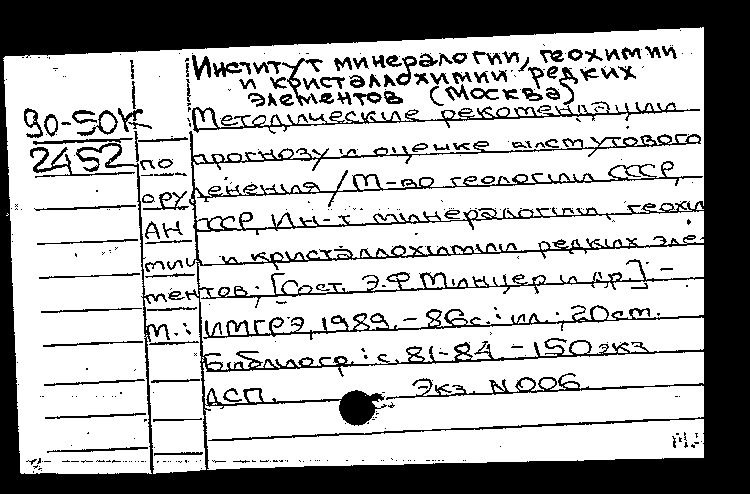 Институт минералогии, геохимии
и кристаллохимии редких
элементов (Москва)
90-50К Методические рекомендации
2452 по прогнозу и оценке висмутового
оруденения / М-во геологии СССР,
АН СССР, Ин-т минералогии, геохи
мии и кристаллохимии редких эле-
ментов; [Сост. Э.Ф. Минцер и др.]. –
М.: ИМГРЭ, 1989. – 86с.: ил.; 20см.
Библиогр.: с. 81-84. – 150 экз
ДСП. Экз. N 006